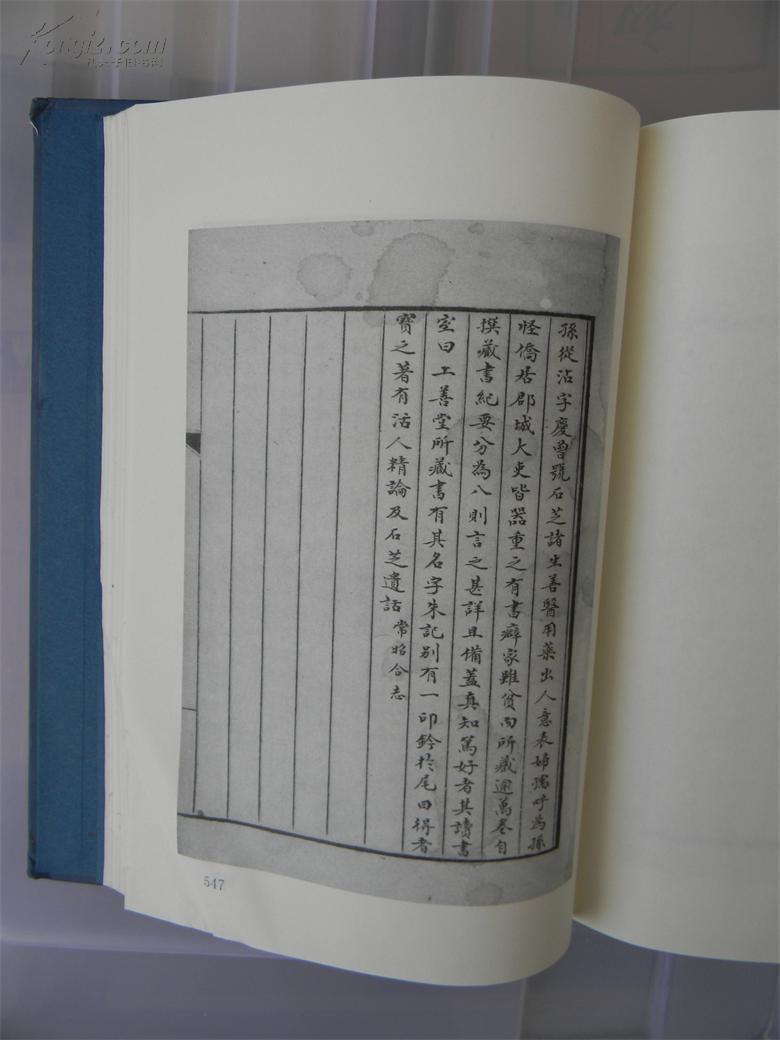 孫從沾字慶曾號石芝諸生善醫用藥出人意表婦孺呼為孫
怪僑居郡城大吏皆器重之有書癖家雖貧而所藏逾萬卷自
撰藏書紀要分為八則言之甚詳且備蓋真知篤好者其讀書
室曰上善堂所藏書有其名字朱記別有一印鈐於尾曰得者
寶之著有活人精論及石芝遺話 常昭合志
547
Kongfz.com
孔夫子旧书网